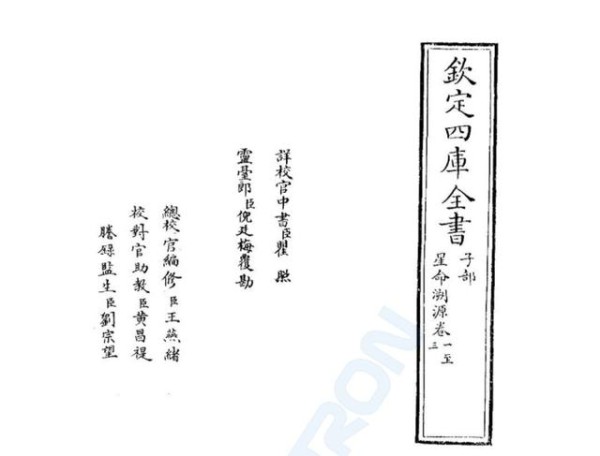 欽定四庫全書
子部
星命溯源卷一至三
詳校官中書臣瞿照
靈臺郎臣倪廷梅覆勘
總校官編修臣王燕緒
校對官助教臣黃昌禔
謄錄監生臣劉宗望
TRON